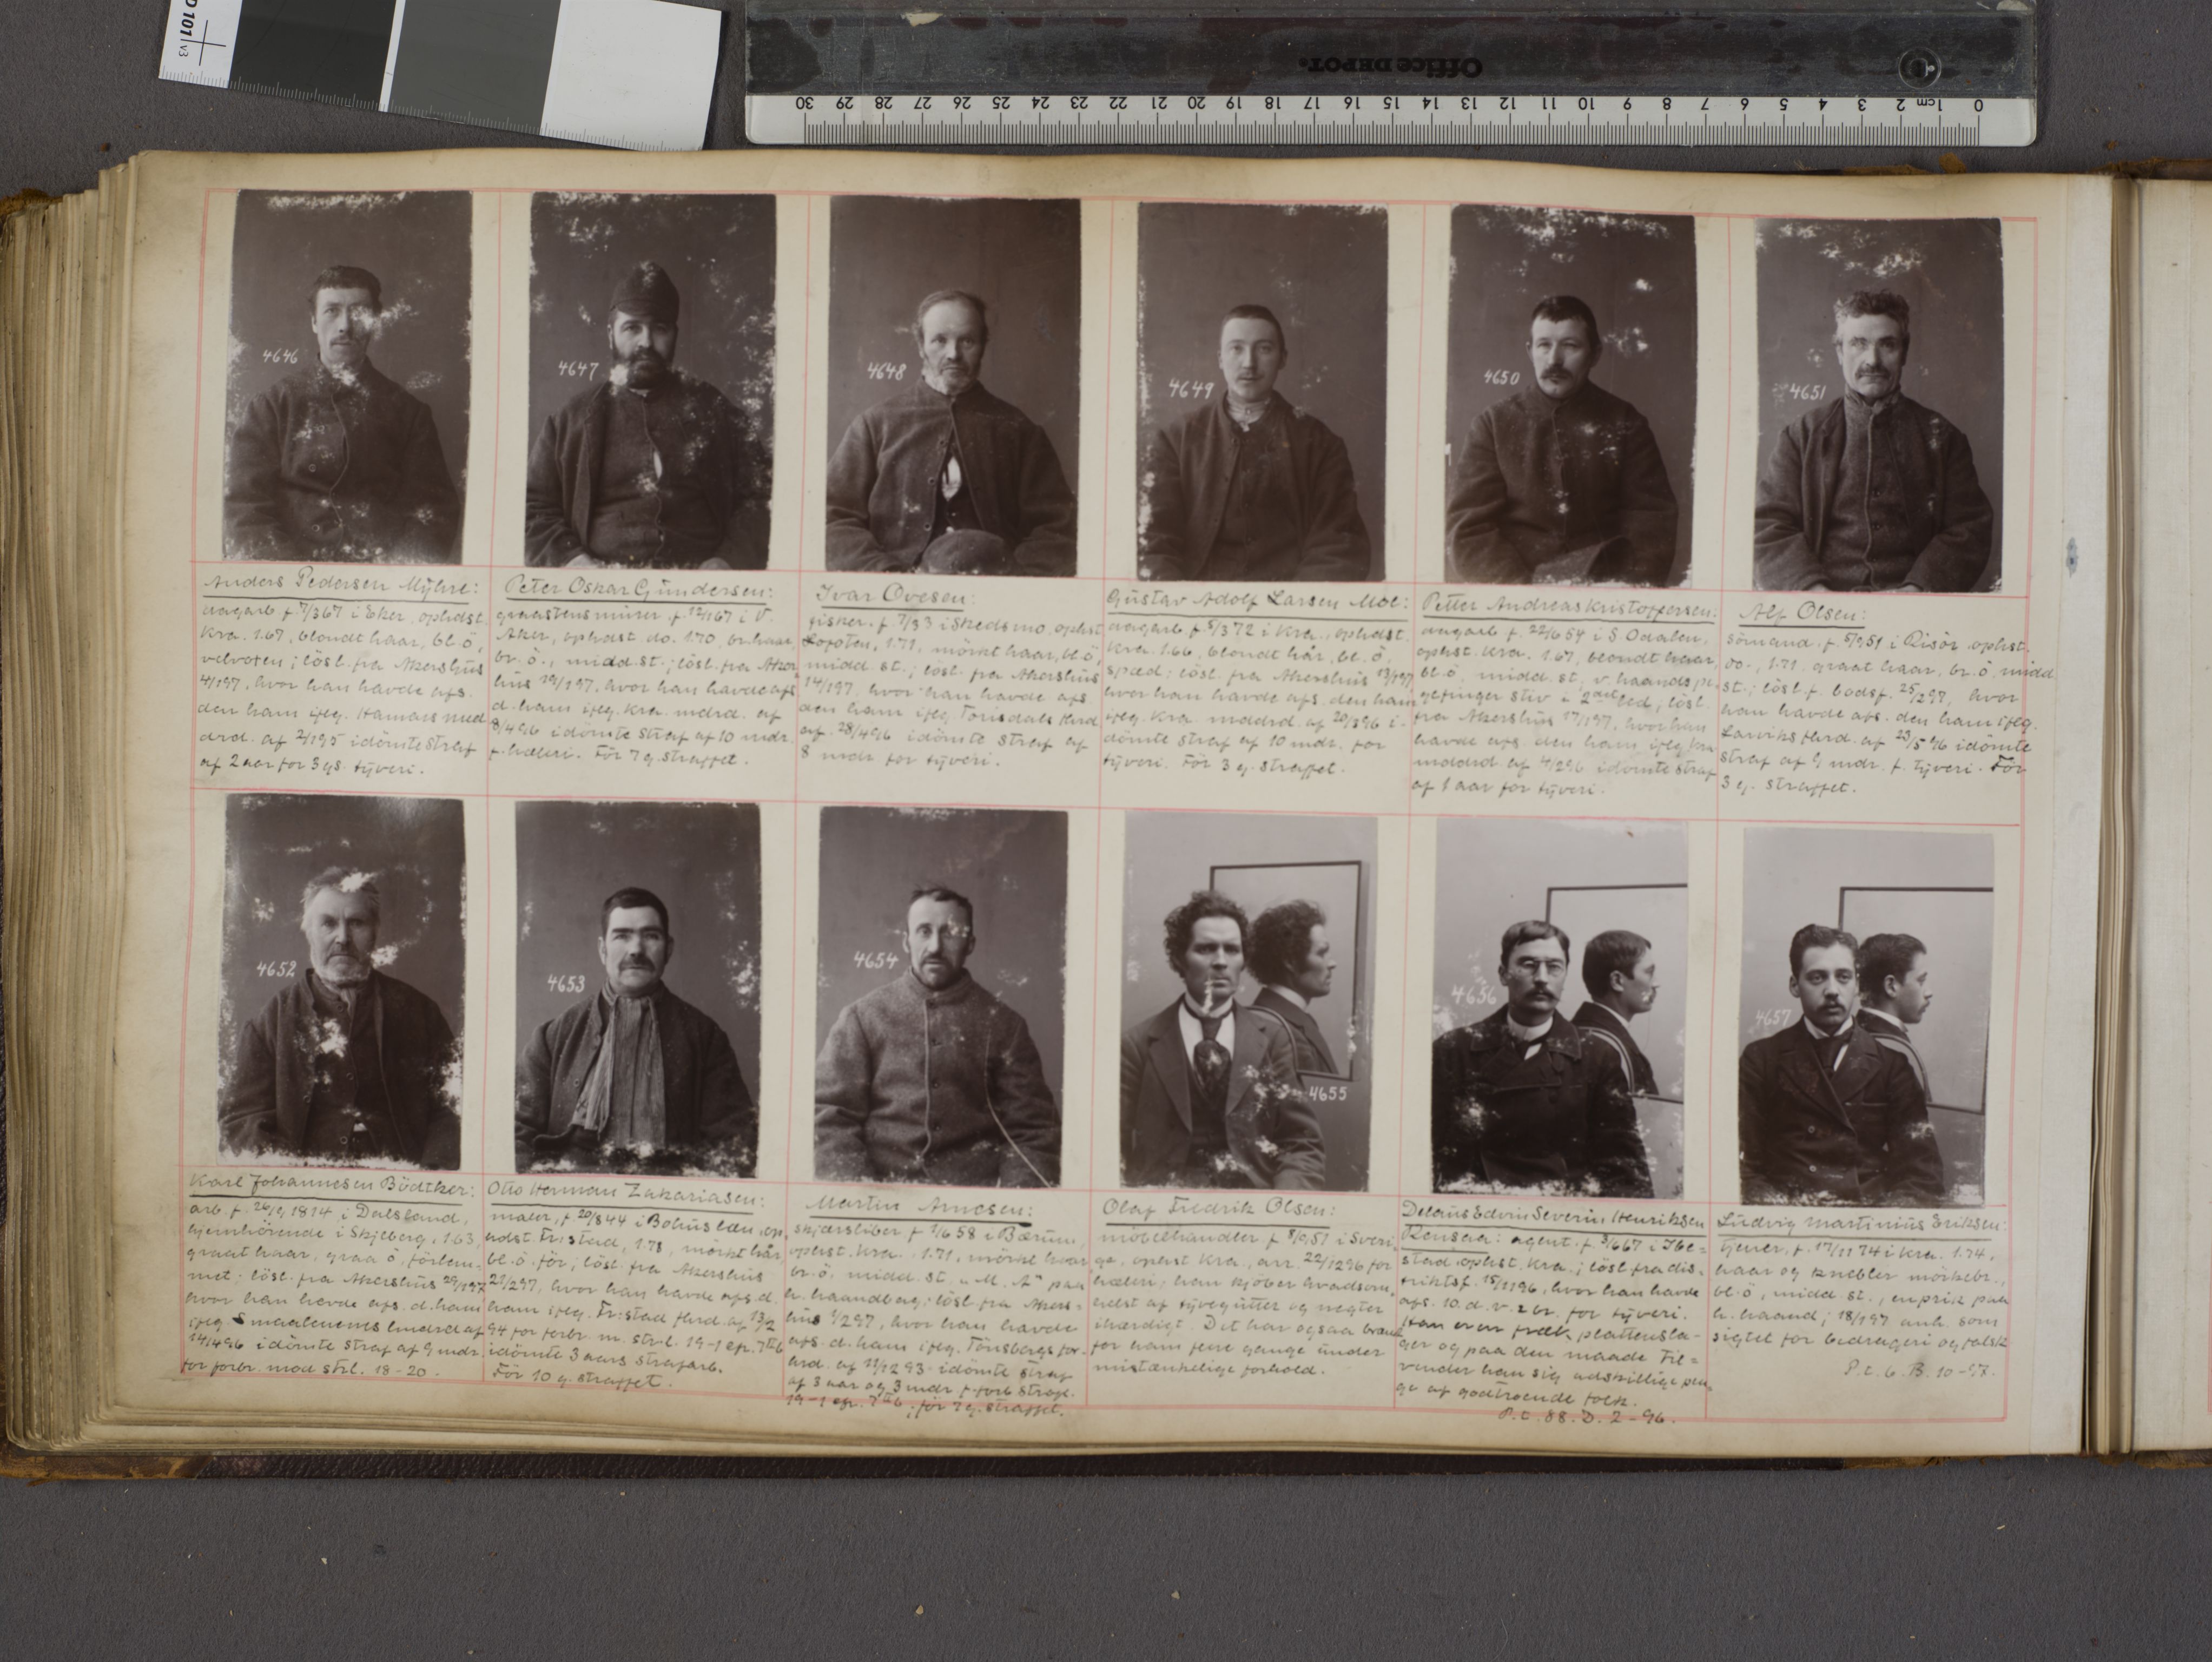 D 101 v3
Office DEPOT
30 29 28 27 26 25 24 23 22 21 20 19 18 17 16 15 14 13 12 11 10 9 8 7 6 5 4 3 2 1cm 0
4646
Anders Pedersen Myhre:
dagarb f. 7/3 67 i Eker, ophdst.
Kra. 1.67, blondt haar, bl. ö,
velvoxen; lösl. fra Akershus
4/1 97, hvor han havde afs.
den ham iflg. Hamars med
drd. af 2/1 95 idömte straf
af 2 aar for 3 gs. tyveri.
4647
Peter Oskar Gundersen:
graastensmurer f. 12/1 67 i V.
Aker, ophdst. do. 1.70, br. haar,
br. ö., midd. st.; lösl. fra Akers
hus 19/1 97, hvor han havde afs
d. ham iflg. Kra. mdrd. af
8/4 96 idömte straf af 10 mdr.
f. hæleri. För 7 g. straffet.
4648
Ivar Ovesen:
fisker f. 7/3 3 i Skedsmo, ophst
Lofoten, 1.71, mörkt haar, bl. ö,
midd. st.; lösl. fra Akershus
14/1 97, hvor han havde afs
den ham iflg. hrd.
af 28/4 96 idömte straf af
8 mdr for tyveri.
4649
Gustav Adolf Larsen Moe:
dagarb f. 5/3 72 i Kra., ophdst.
Kra. 1.66, blondt hår, bl. ö,
spæd; lösl. fra Akershus 13/1 97
hvor han havde afs. den ham
iflg. Kra. mddrd. af 20/3 96 i-
dömte straf af 10 mdr. for
tyveri. För 3 g. straffet.
4650
Petter Andreas Kristoffersen:
dagarb f. 22/6 54 i S. Odalen,
ophst. Kra. 1.67, blondt haar,
bl. ö, midd. st., v. haands pe-
gefinger stiv i 2det led; lösl.
fra Akershus 17/1 97, hvor han
havde afs. den ham iflg. Kra
mddrd af 4/2 96 idömte straf
af 1 aar for tyveri.
4651
Alf Olsen:
sömand. f. 5/9 51 i Risör, ophst.
do., 1.71. graat haar, br. ö. midd
st.; lösl. f. bodsf. 25/2 97, hvor
han havde afs. den ham iflg.
Larviks hrd. af 23/5 96 idömte
straf af 9 mdr. f. tyveri. För
3 g. straffet.
4652
Karl Johannesen Bödtker:
arb. f. 26/9 1814 i Dalsland,
hjemhörende i Skjeberg, 1.63,
graat haar, graa ö, förlem-
met; lösl. fra Akershus 29/1 97
hvor han havde afs. d. ham
iflg. Smaalenenes af
14/4 96 idömte straf af 9 mdr.
for forbr. mod strl. 18-20.
4653
Otto Herman Zakariasen:
maler, f. 20/8 44 i Bohuslæn, op.
hdst. Fr.stad, 1.78, mörkt hår
bl. ö. för; lösl. fra Akershus
21/2 97, hvor han havde afs. d.
ham iflg. Fr.stad hrd. af 13/2
94 for forbr. m. str-l. 19-1 cfr. 7de 6
idömte 3 aars strafarb.
För 10 g. straffet.
4654
Martin Arnesen:
skjærsliber f. 1/6 58 i Bærum,
ophst. Kra., 1.71, mörkt haar
br. ö, midd. st. „M. A" paa
h. haandbag; lösl. fra Akers-
hus 1/2 97, hvor han havde
afs. d. ham iflg. Tönsbergs
hrd. af 11/12 93 idömte straf
af 3 aar og 3 mdr f. forb. strafl.
19-1 cfr. 7de 6; för 7 g. straffet.
4655
Olaf Fredrik Olsen:
möbelhandler f. 8/9 51 i Sveri-
ge, ophst Kra., arr. 22/12 96 for
hæleri; han kjöber hvadsom-
helst af tyvegutter og negter
ihærdigt. Det har ogsaa brændt
for ham flere gange under
mistænkelige forhold.
4656
Delaus Edvin Severin Henriksen
Rensaa: agent. f. 3/6 67 i Ibe-
stad, ophst. Kra.; lösl fra dis-
triktsf. 15/11 96, hvor han havde
afs. 10. d. v. & br. for tyveri.
Han er en fræk plattensla-
ger og paa den maade til-
vender han sig adskillige pen-
ge af godtroende folk.
P.t. 88. D. 2-96.
4657
Ludvig Martinius Eriksen:
tjener, f. 17/11 74 i Kra. 1.74.
haar og knebler mörkebr.,
bl. ö, midd. st., en prik paa
h. haand; 18/1 97 anh. som
sigtet for bedrageri og falsk
P.t. 6. B. 10-97.